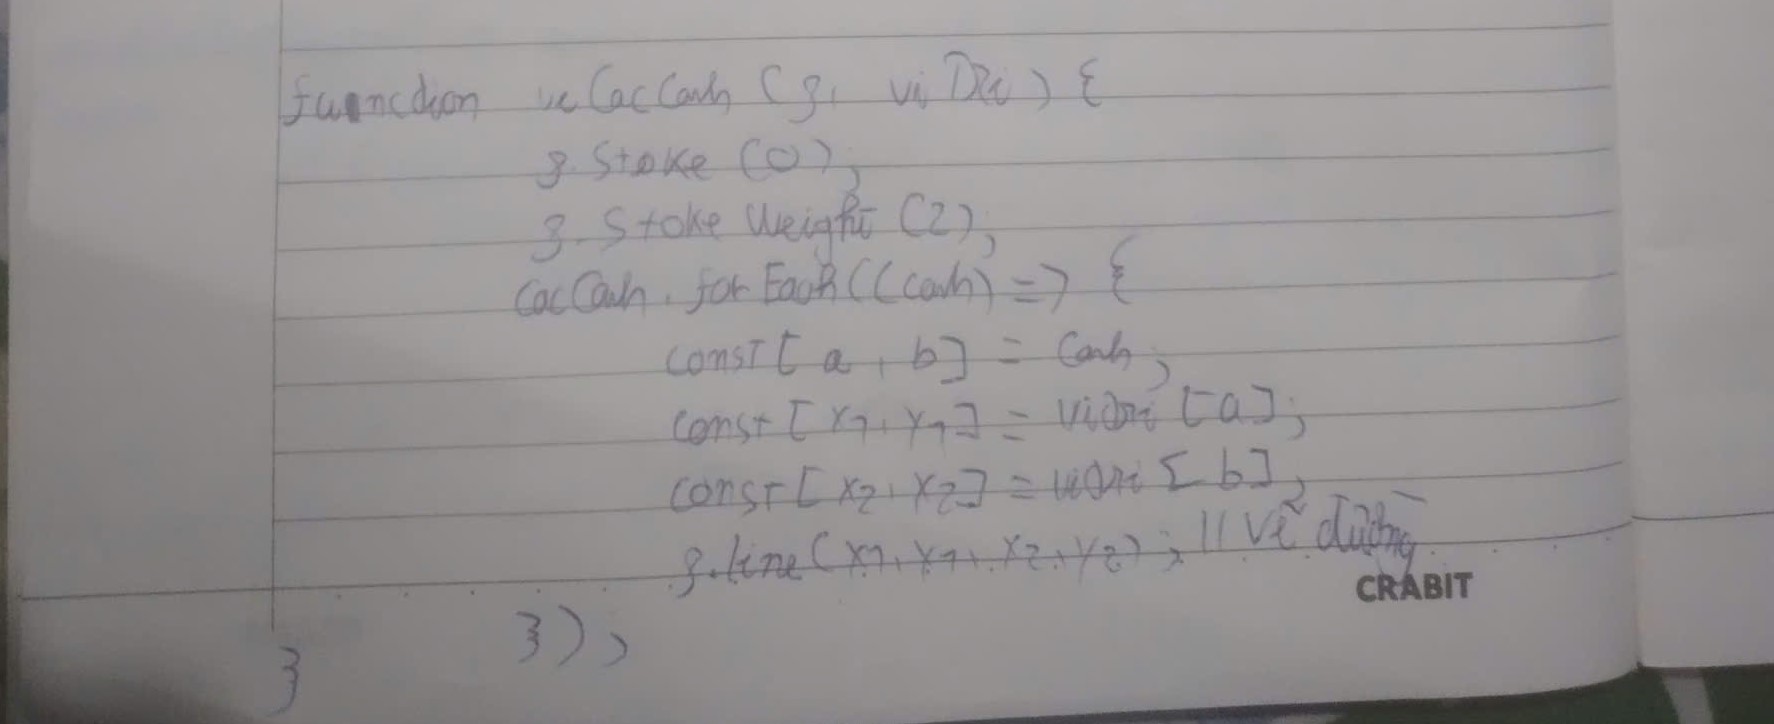 function veCacCanh (g, viDri) {
g. Stoke (0);
g. Stoke Weight (2);
CacCanh. for Each ((canh) => {
const [ a , b ] = Canh ;
const [ x1, y1 ] = viDri [a];
const [ x2, x2 ] = viDri [ b ];
g.line ( x1, y1, x2, y2 ) ; // vẽ đường
CRABIT
});
}